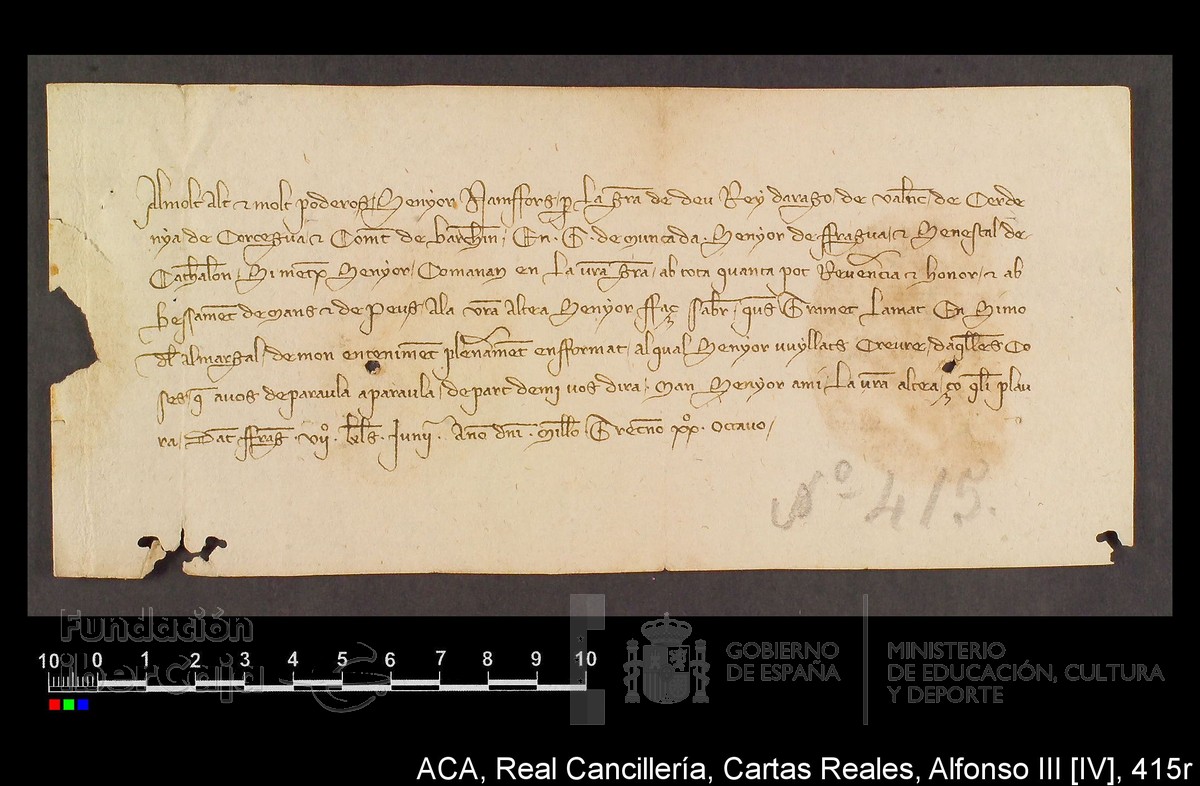 Al molt alt ⁊ molt poderos Senyor Namffors, p la gra de deu Rey darago, de Valnc, de Cerde
nya de Corcegua, ⁊ Comt de barchn, En. G. de muncada. Senyor de ffragua, ⁊ Senescal de
Cathalon, Si metex, Senyor, Comanan en La vra gra, ab tota quanta pot Reverencia ⁊ honor, ⁊ ab
besament de mans ⁊ de Peus, Ala vra Altea Senyor ffaç saber, qus Tramet Lamat En Simo
dl almarsal, de mon enteniment plenament enfformat, al qual Senyor vuyllats Creure, daqlles Co
ses q avos de paraula a paraula, de part de mi vos dira, Man Senyor ami, La vra altea, ço qli plau
ra, Dat ffrag. vijº. kls. Junij. Año dni. Millo. Trecno xxº. octavo,
Nº 415.
Fundación
iberCaja
10 0 1 2 3 4 5 6 7 8 9 10
GOBIERNO
DE ESPAÑA
MINISTERIO
DE EDUCACIÓN, CULTURA
Y DEPORTE
ACA, Real Cancillería, Cartas Reales, Alfonso III [IV], 415r